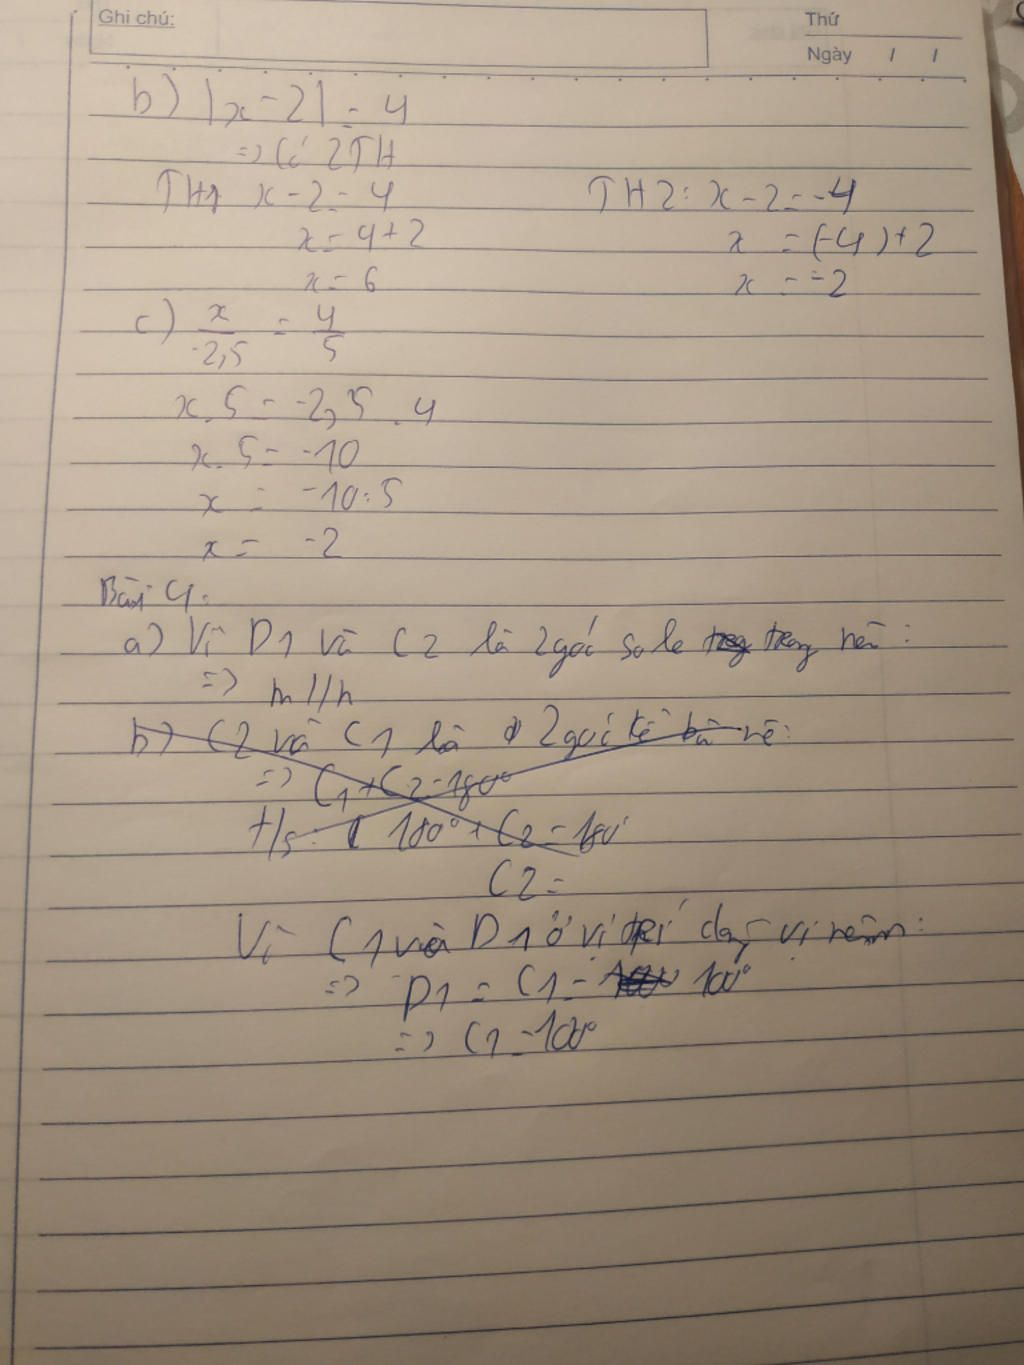 Ghi chú:
Thứ
Ngày / /
b) |x - 2| = 4
=> Có 2TH
TH1 x - 2 = 4
x = 4 + 2
x = 6
TH2: x - 2 = -4
x = (-4) + 2
x = -2
c) x/-2,5 = 4/5
x . 5 = -2,5 . 4
x . 5 = -10
x = -10 : 5
x = -2
Bài 4:
a) Vì D1 và C2 là 2 góc so le trong nên:
=> m // n
b) C2 và C1 là 2 góc kề bù nê:
=> C1 + C2 = 180°
T/s: 180° + C2 = 180°
C2 =
Vì C1 và D1 ở vị trí đồng vị nên:
=> D1 = C1 = 100°
=> C1 = 100°